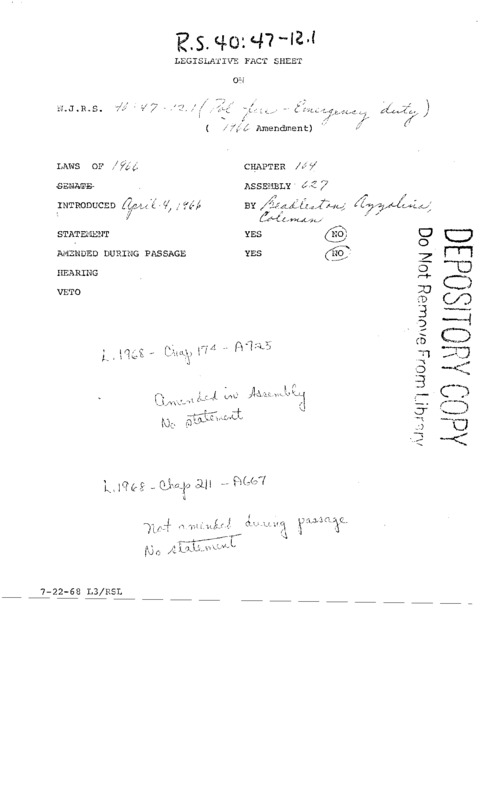 R.S. 40:47-12.1
LEGISLATIVE FACT SHEET
ON
N.J.R.S. 40:47-12.1 (Pol - fire - Emergency duty)
( 1966 Amendment)
LAWS OF 1966 CHAPTER 164
SENATE ASSEMBLY 627
INTRODUCED April 4, 1966 BY Beadleston, Azzolina,
Coleman
STATEMENT YES NO
AMENDED DURING PASSAGE YES NO
HEARING
VETO
DEPOSITORY COPY
Do Not Remove From Library
L.1968 - Chap 174 - A725
Amended in Assembly
No statement
L.1968 - Chap 211 - A667
Not amended during passage
No statement
7-22-68 L3/RSL